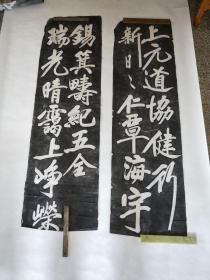 上元道協健行
新日〻仁覃海宇
錫箕疇紀五全
瑞光晴靄上崢嶸